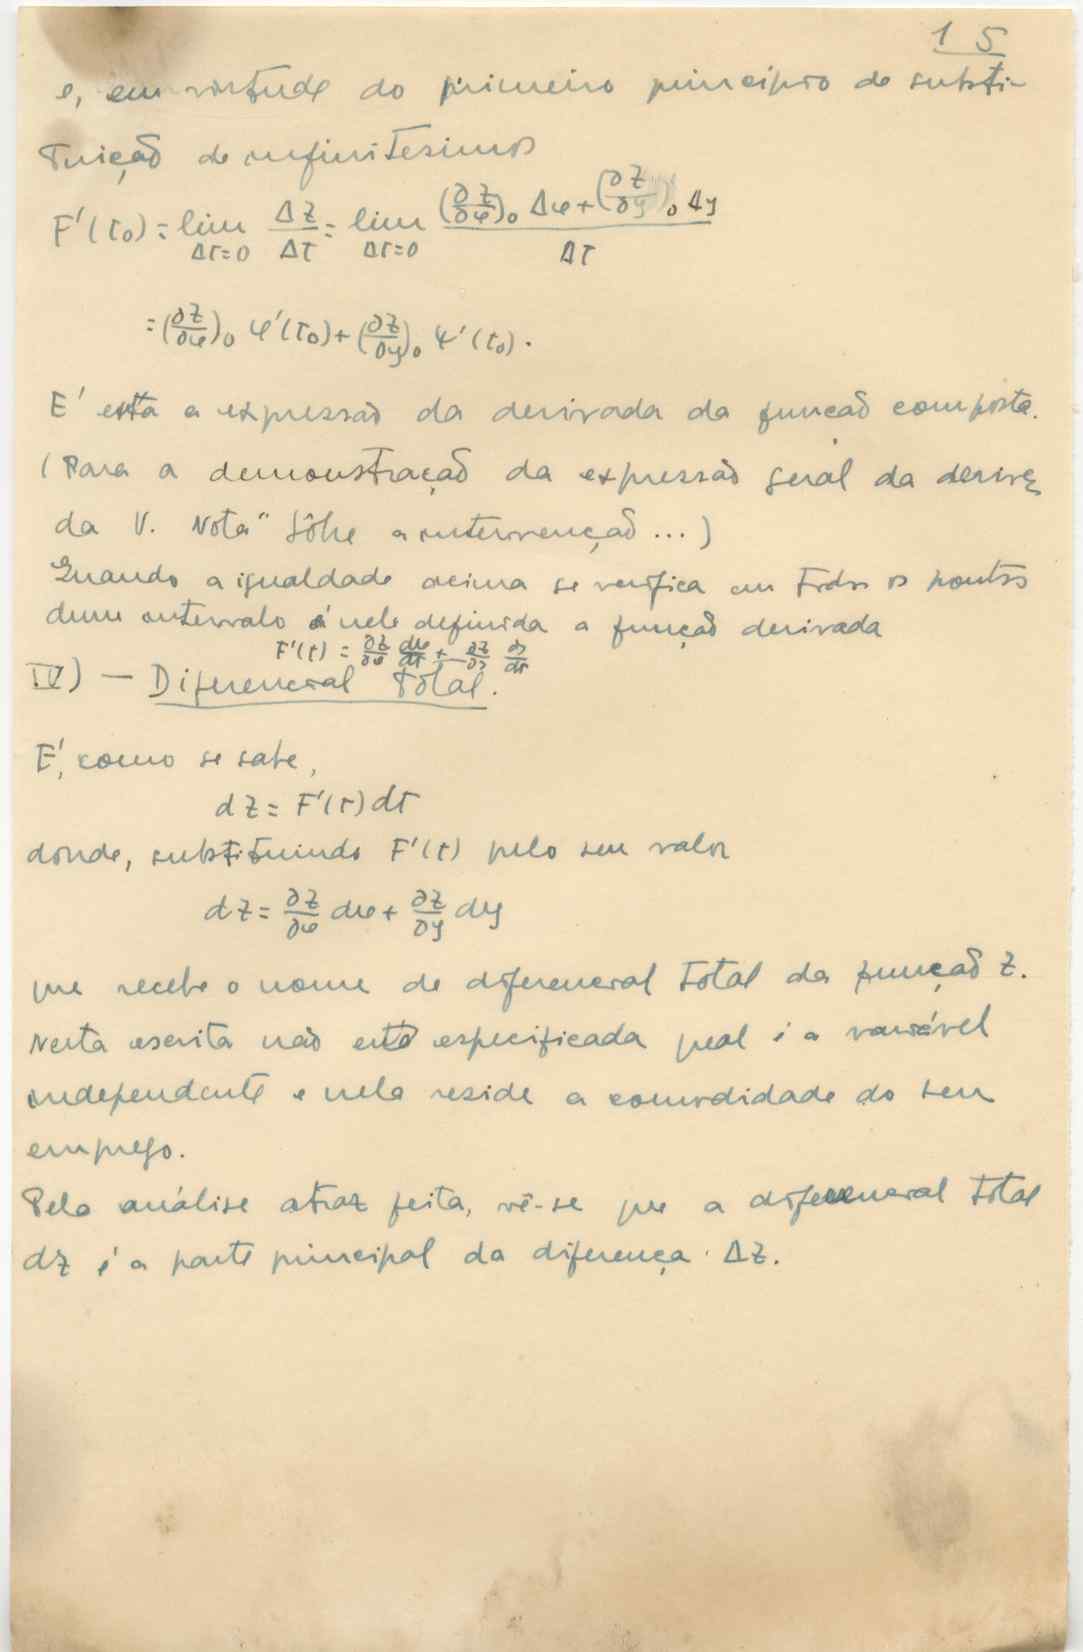 15
e, em virtude do primeiro princípio de substi-
tuição de infinitésimos
F'(t₀) = lim Δt=0 Δz/Δt = lim Δt=0 ((∂z/∂x)₀ Δx + (∂z/∂y)₀ Δy)/Δt
= (∂z/∂x)₀ φ'(t₀) + (∂z/∂y)₀ ψ'(t₀).
E' esta a expressão da derivada da função composta.
(Para a demonstração da expressão geral da deriva
da V. Nota "Sôbre a intervenção ...)
Quando a igualdade acima se verifica em todos os pontos
dum intervalo é nele definida a função derivada
F'(t) = ∂z/∂x dx/dt + ∂z/∂y dy/dt
IV) — Diferencial total.
E', como se sabe,
dz = F'(t) dt
donde, substituindo F'(t) pelo seu valor
dz = ∂z/∂x dx + ∂z/∂y dy
que recebe o nome de diferencial total da função z.
Nesta escrita não está especificada qual é a variável
independente e nela reside a comodidade do seu
emprego.
Pela análise atraz feita, vê-se que a diferencial total
dz é a parte principal da diferença Δz.